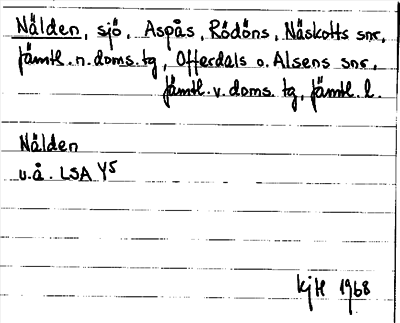 Nälden, sjö, Aspås, Rödöns, Näskotts snr,
Jämtl. n. doms. tg, Offerdals o. Alsens snr,
Jämtl. v. doms. tg, Jämtl. l.
Nälden
u.å. LSA Y5
kjH 1968